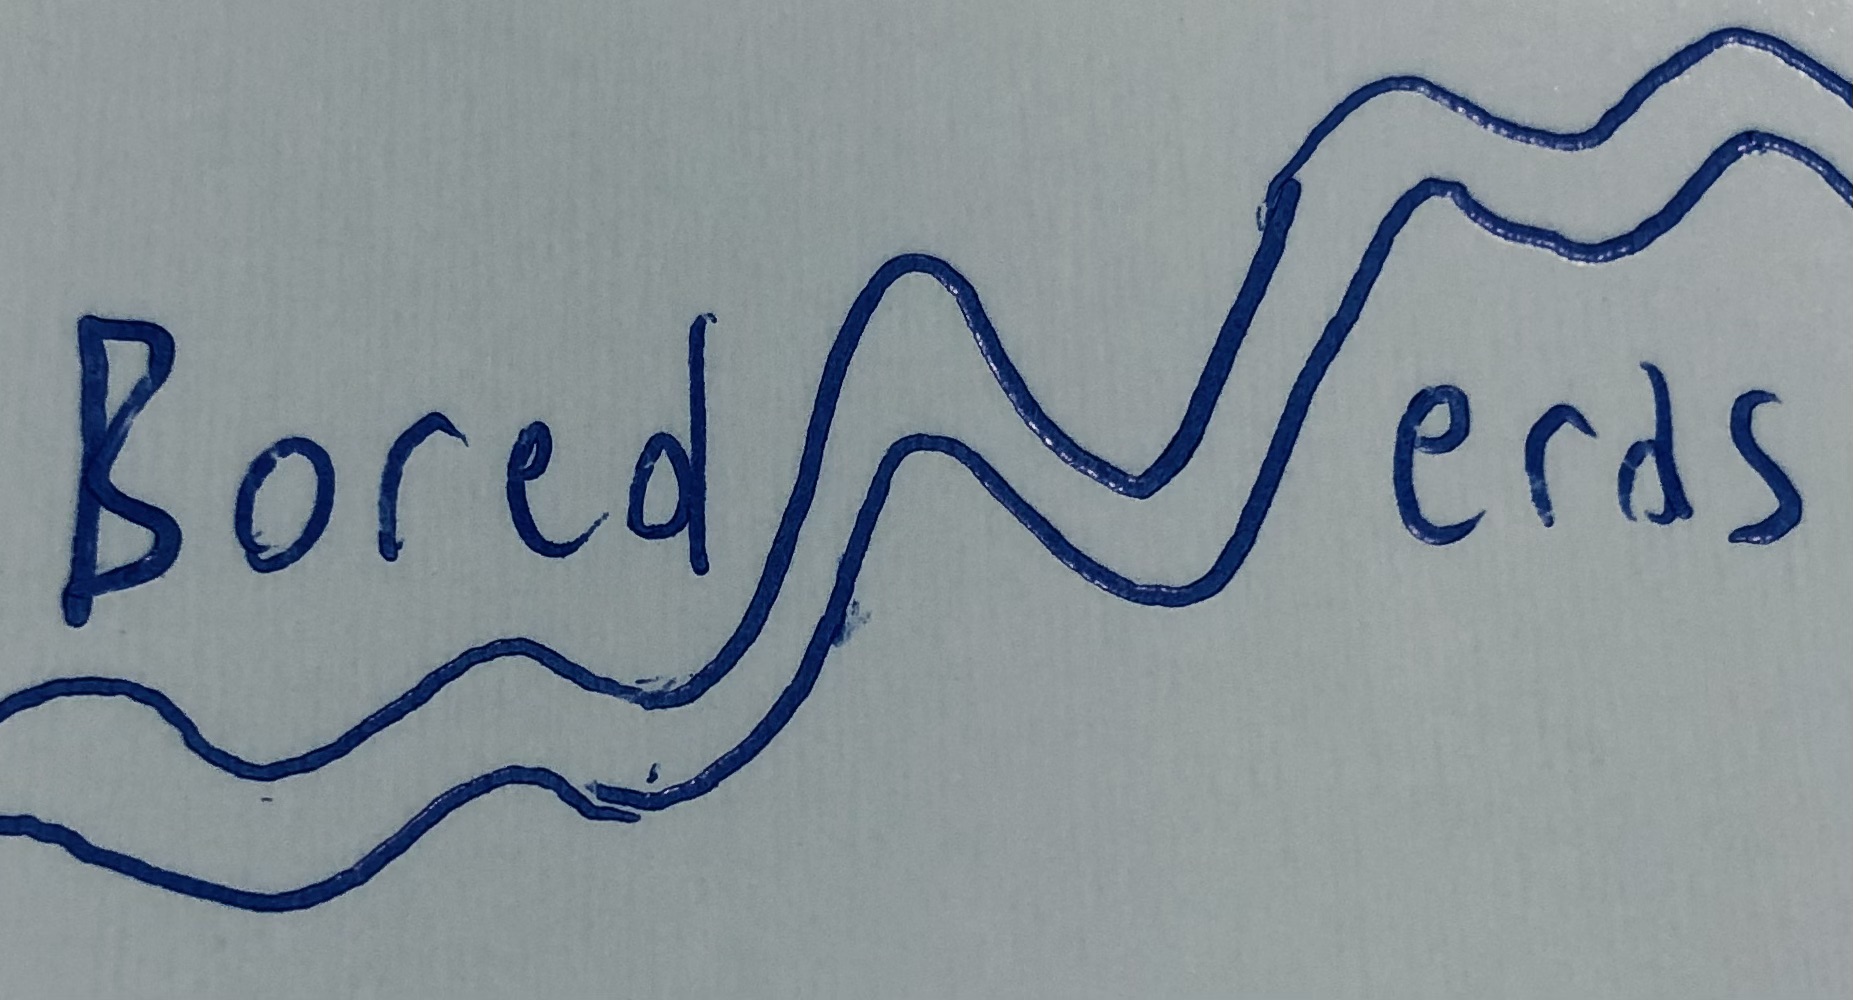 Bored Nerds